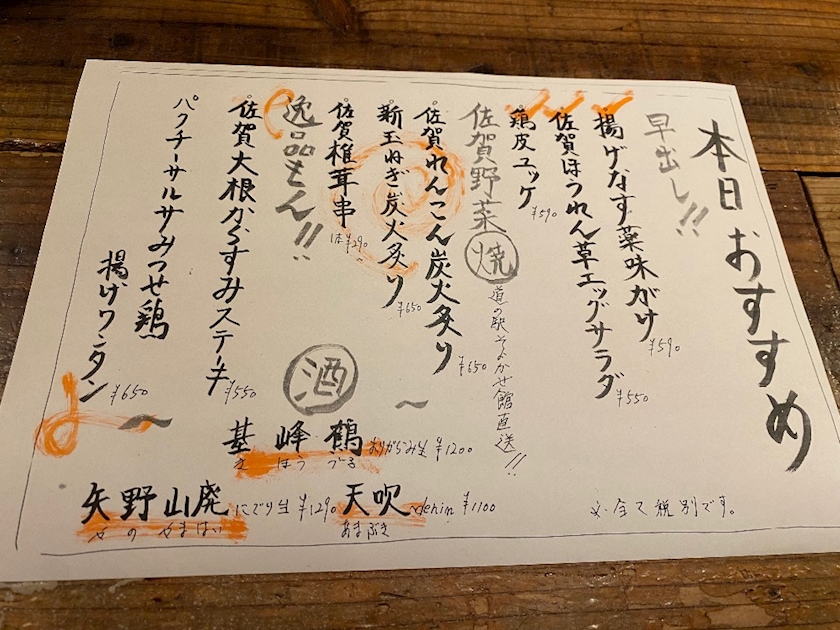 本日おすすめ
早出し!!
揚げなす薬味がけ ¥590
佐賀ほうれん草エッグサラダ ¥550
鶏皮ユッケ ¥590
佐賀野菜 焼 道の駅そよかぜ館直送!!
佐賀れんこん炭火炙り ¥650
新玉ねぎ炭火炙り ¥650
佐賀椎茸串 1本¥290
逸品もん!!
佐賀大根からすみステーキ ¥550
パクチーサルサみつせ鶏
揚げワンタン ¥650
〜酒〜
基峰鶴 おりがらみ生 ¥1200
きほうづる
天吹 denim ¥1100
あまぶき
矢野山廃 にごり生 ¥1290
やのやまはい
※全て税別です。